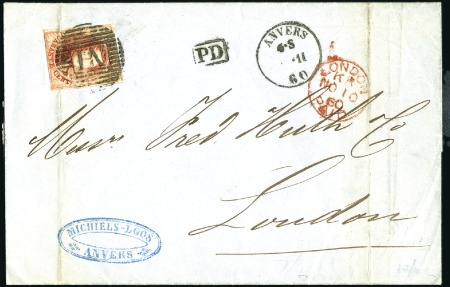 PD
ANVERS
6-S
11
60
LONDON
NO 10
60
Messrs Fred. Huth & Co
London
MICHIELS-LOOS
ANVERS